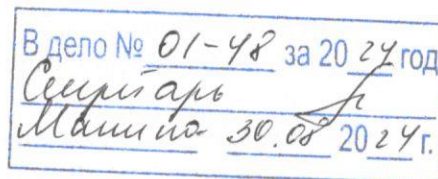 В дело № 01-48 за 2024 год
Секретарь
Машина 30.08 2024 г.